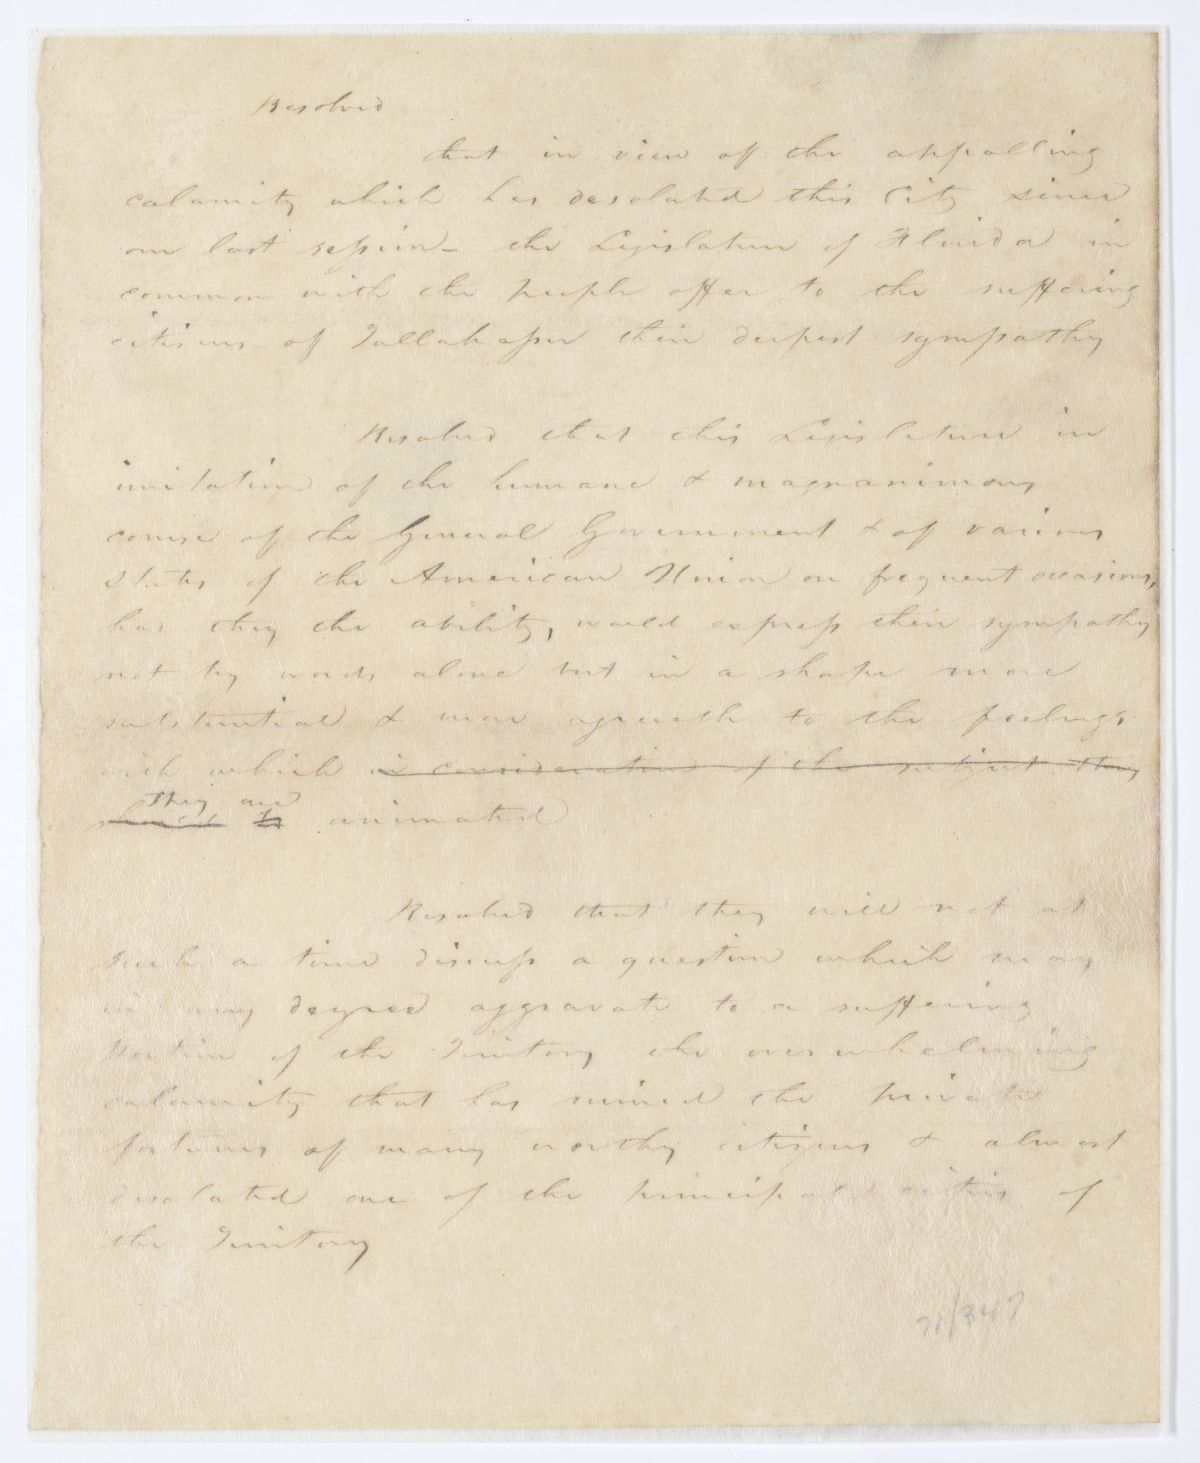 Resolved
that in view of the appalling
calamity which has desolated this City since
our last session - the Legislature of Florida in
common with the people offer to the suffering
citisens of Tallahassee their deepest sympathy
Resolved that this Legislature in
imitation of the humane & magnanimous
course of the General Government & of various
States of the American Union on frequent occasions,
had they the ability, would express their sympathy
not by words alone but in a shape more
substantial & more agreeable to the feelings
with which in consideration of the subject they
they are
should be animated
Resolved that they will not at
such a time discuss a question which may
in any degree aggravate to a suffering
portion of the Territory the overwhelming
calamity that has ruined the private
fortunes of many worthy citizens & almost
desolated one of the principal cities of
the Territory
71/347